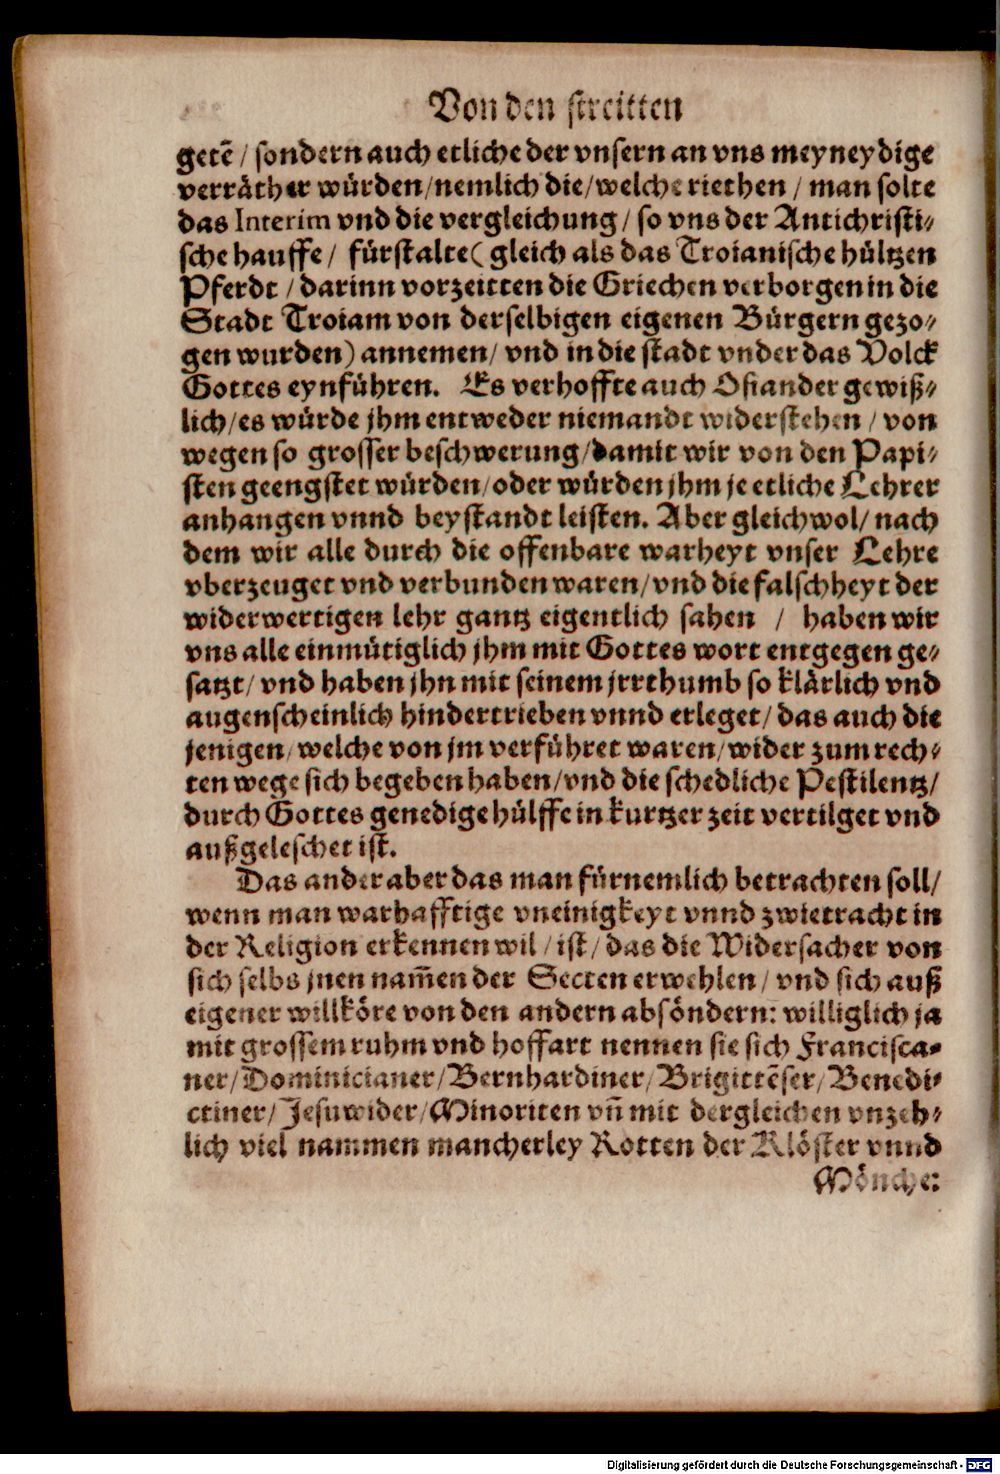 Von den streitten
getẽ / sondern auch etliche der vnsern an vns meyneydige
verräther würden/nemlich die/welche riethen / man solte
das Interim vnd die vergleichung / so vns der Antichristi⸗
sche hauffe / fürstalte (gleich als das Troianische hültzen
Pferdt / darinn vorzeitten die Griechen verborgen in die
Stadt Troiam von derselbigen eigenen Bürgern gezo⸗
gen wurden) annemen/ vnd in die stadt vnder das Volck
Gottes eynführen. Es verhoffte auch Osiander gewiß⸗
lich/es würde jhm entweder niemandt widerstehen / von
wegen so grosser beschwerung/damit wir von den Papi⸗
sten geengstet würden/oder würden jhm je etliche Lehrer
anhangen vnnd beystandt leisten. Aber gleichwol/ nach
dem wir alle durch die offenbare warheyt vnser Lehre
vberzeuget vnd verbunden waren/vnd die falschheyt der
widerwertigen lehr gantz eigentlich sahen / haben wir
vns alle einmütiglich jhm mit Gottes wort entgegen ge⸗
satzt/ vnd haben jhn mit seinem jrrthumb so klärlich vnd
augenscheinlich hindertrieben vnnd erleget/ das auch die
jenigen/welche von jm verführet waren/wider zum rech⸗
ten wege sich begeben haben/vnd die schedliche Pestilentz/
durch Gottes genedige hülffe in kurtzer zeit vertilget vnd
außgeleschet ist.
Das ander aber das man fürnemlich betrachten soll/
wenn man warhafftige vneinigkeyt vnnd zwietracht in
der Religion erkennen wil / ist / das die Widersacher von
sich selbs jnen nam̃en der Secten erwehlen / vnd sich auß
eigener willköre von den andern absöndern: williglich ja
mit grossem ruhm vnd hoffart nennen sie sich Francisca⸗
ner/Dominicianer/Bernhardiner/Brigittẽser/Benedi⸗
ctiner/Jesuwider/Minoriten vñ mit dergleichen vnzeh⸗
lich viel nammen mancherley Rotten der Klöster vnnd
Mönche:
Digitalisierung gefördert durch die Deutsche Forschungsgemeinschaft - DFG